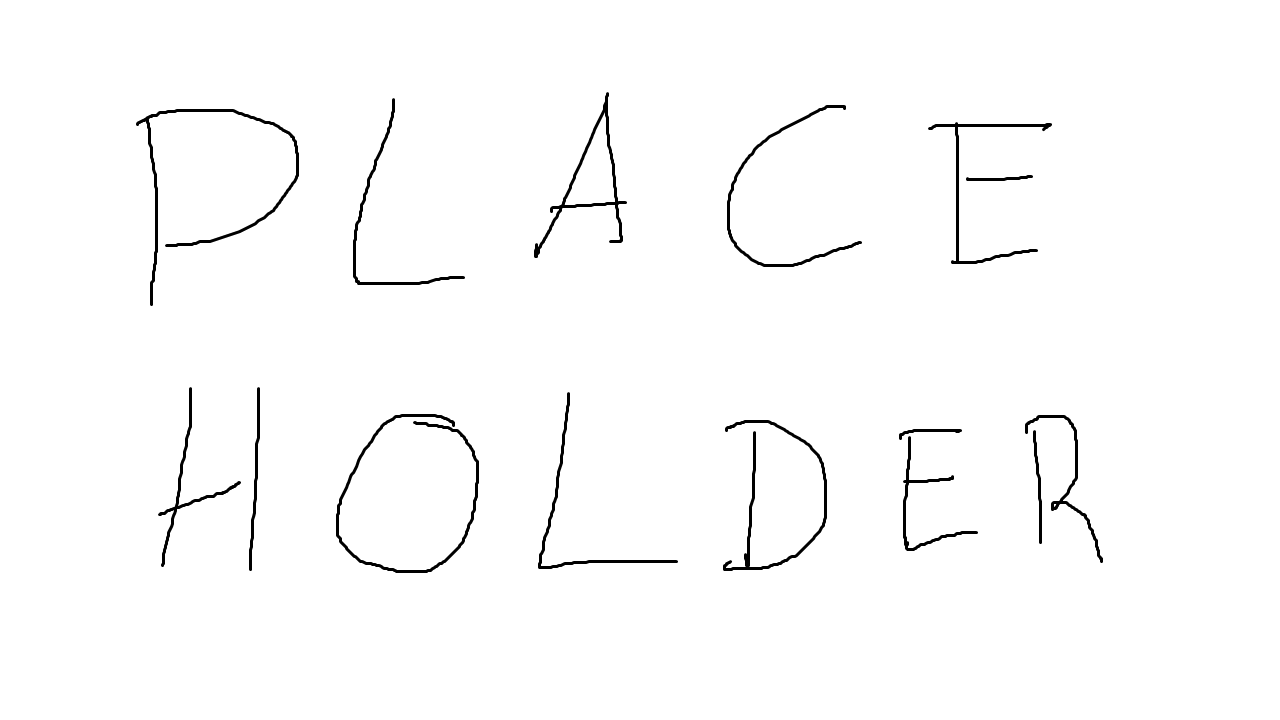 PLACE
HOLDER